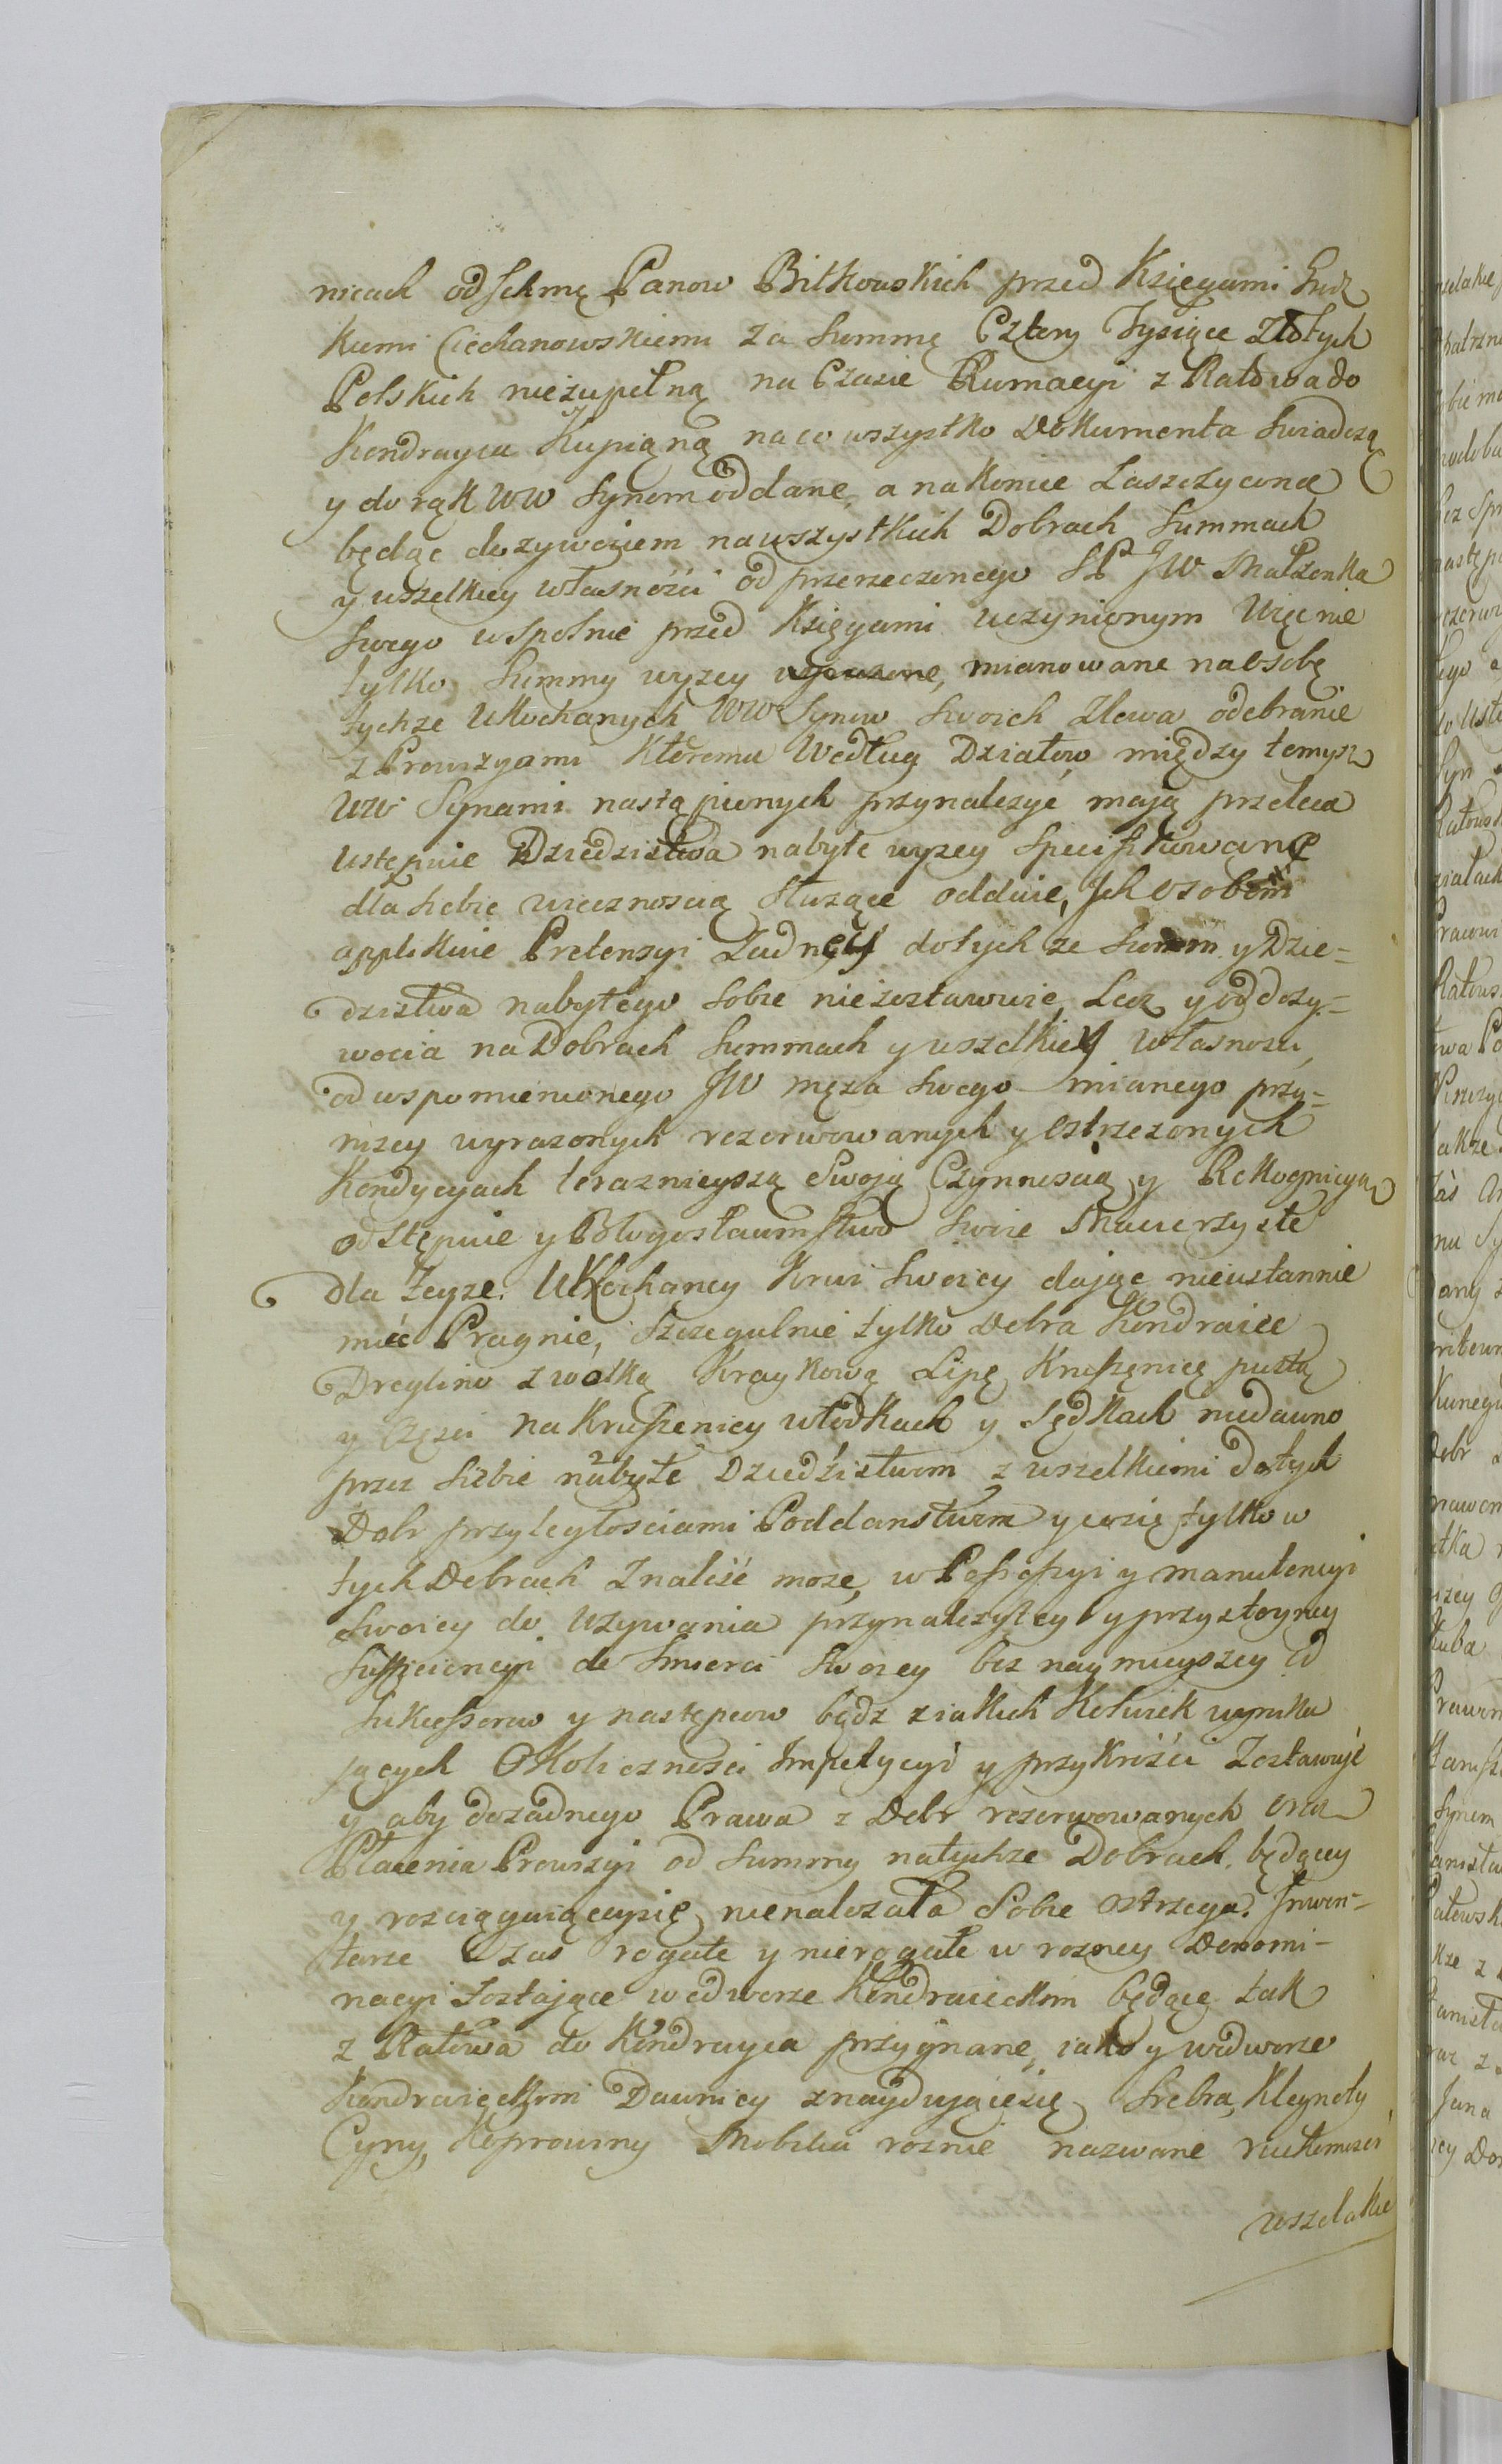 nicach od Ichmę Panow Bitkowskich przed Księgami Grodz
kiemi Ciechanowskiemi za Summę Cztery Tysiące Złotych
Polskich niezupełną na Czasie Rumacyi z Ratowa do
Kondrayca Kupiąną na co wszystko Dokumenta Swiadczą
y do rąk WW Synom oddane, a na koniec Zaszczycona
będąc dozywociem na wszystkich Dobrach Summach
y wszelkiey własności od przerzeczonego SP JW Małzonka
Swego wspolnie przed Księgami uczynionym Więc nie
tylko Summy wyzey mianowane na osobę
tychze Ukochanych WW Synow Swoich Zlewa odebranie
z Prowizyami Któremu Według Działow między temysz
WW Synami nastąpionych przynalezyć mają przelewa
Ustępuie Dziedzistwa nabyte wyzey Specifikowane
dla siebie wiecznoscią słuzące oddaie, Ich osobom
applikuie Pretensyi Zadney do tych ze Summ y Dzie-
dzistwa nabytego Sobie niezostawuie, Lecz y od dozy-
wocia na Dobrach Summach y wszelkiey własnosci,
od wspomienionego JW męza Swego mianego przy-
nizey wyrazonych rezerwowanych y ostrzezonych
Kondycyach teraznieyszą Swoją Czynnoscią y Rekognicyą
odstępuie y Błogosławinstwo Swoie Macierzyste
dla Teyze Ukochaney Krwi Swoiey dając nieustannie
mieć Pragnie, Szczegulnie tylko Dobra Kondraice
Dreglino z wolką Kraykową Lipę Kruszęnicę pustą
y Częsci na Kruszenicy włodkach y Sędkach niedawno
przez Siebie nabyte Dziedzistwom z wszelkiemi do tych
Dobr przyległosciami Poddanstwem y co się tylko w
tych Dobrach Znaliść moze, w Possessyi y manutencyi
Swoiey do Uzywania przynalezytey y przystoyney
Sufficiencyi do Smierci Swoiey bez naymnieyszey od
Sukcessorow y następcow bądz z iakich Kolwiek wynika
jących Okoliczności Impetycyi y przykrości Zostawuie
y aby do zadnego Prawa z Dobr rezerwowanych oraz
Płacenia Prowizyi od Summy na tychze Dobrach będącey
y rozciągaiącey się nienalezała Sobie ostrzega. Inwen-
tarze zas rogate y nierogate w rozney Denomi-
nacyi Zostające w dworze Kondraieckim będące tak
z Ratowa do Kondrayca przygnane, iako y w dworze
Kondraięckim Dawniey znayduiącesię, Srebra, Kleynoty
Cyny, Koprowiny Mobilia roznie nazwane ruchomosci
wszelakie